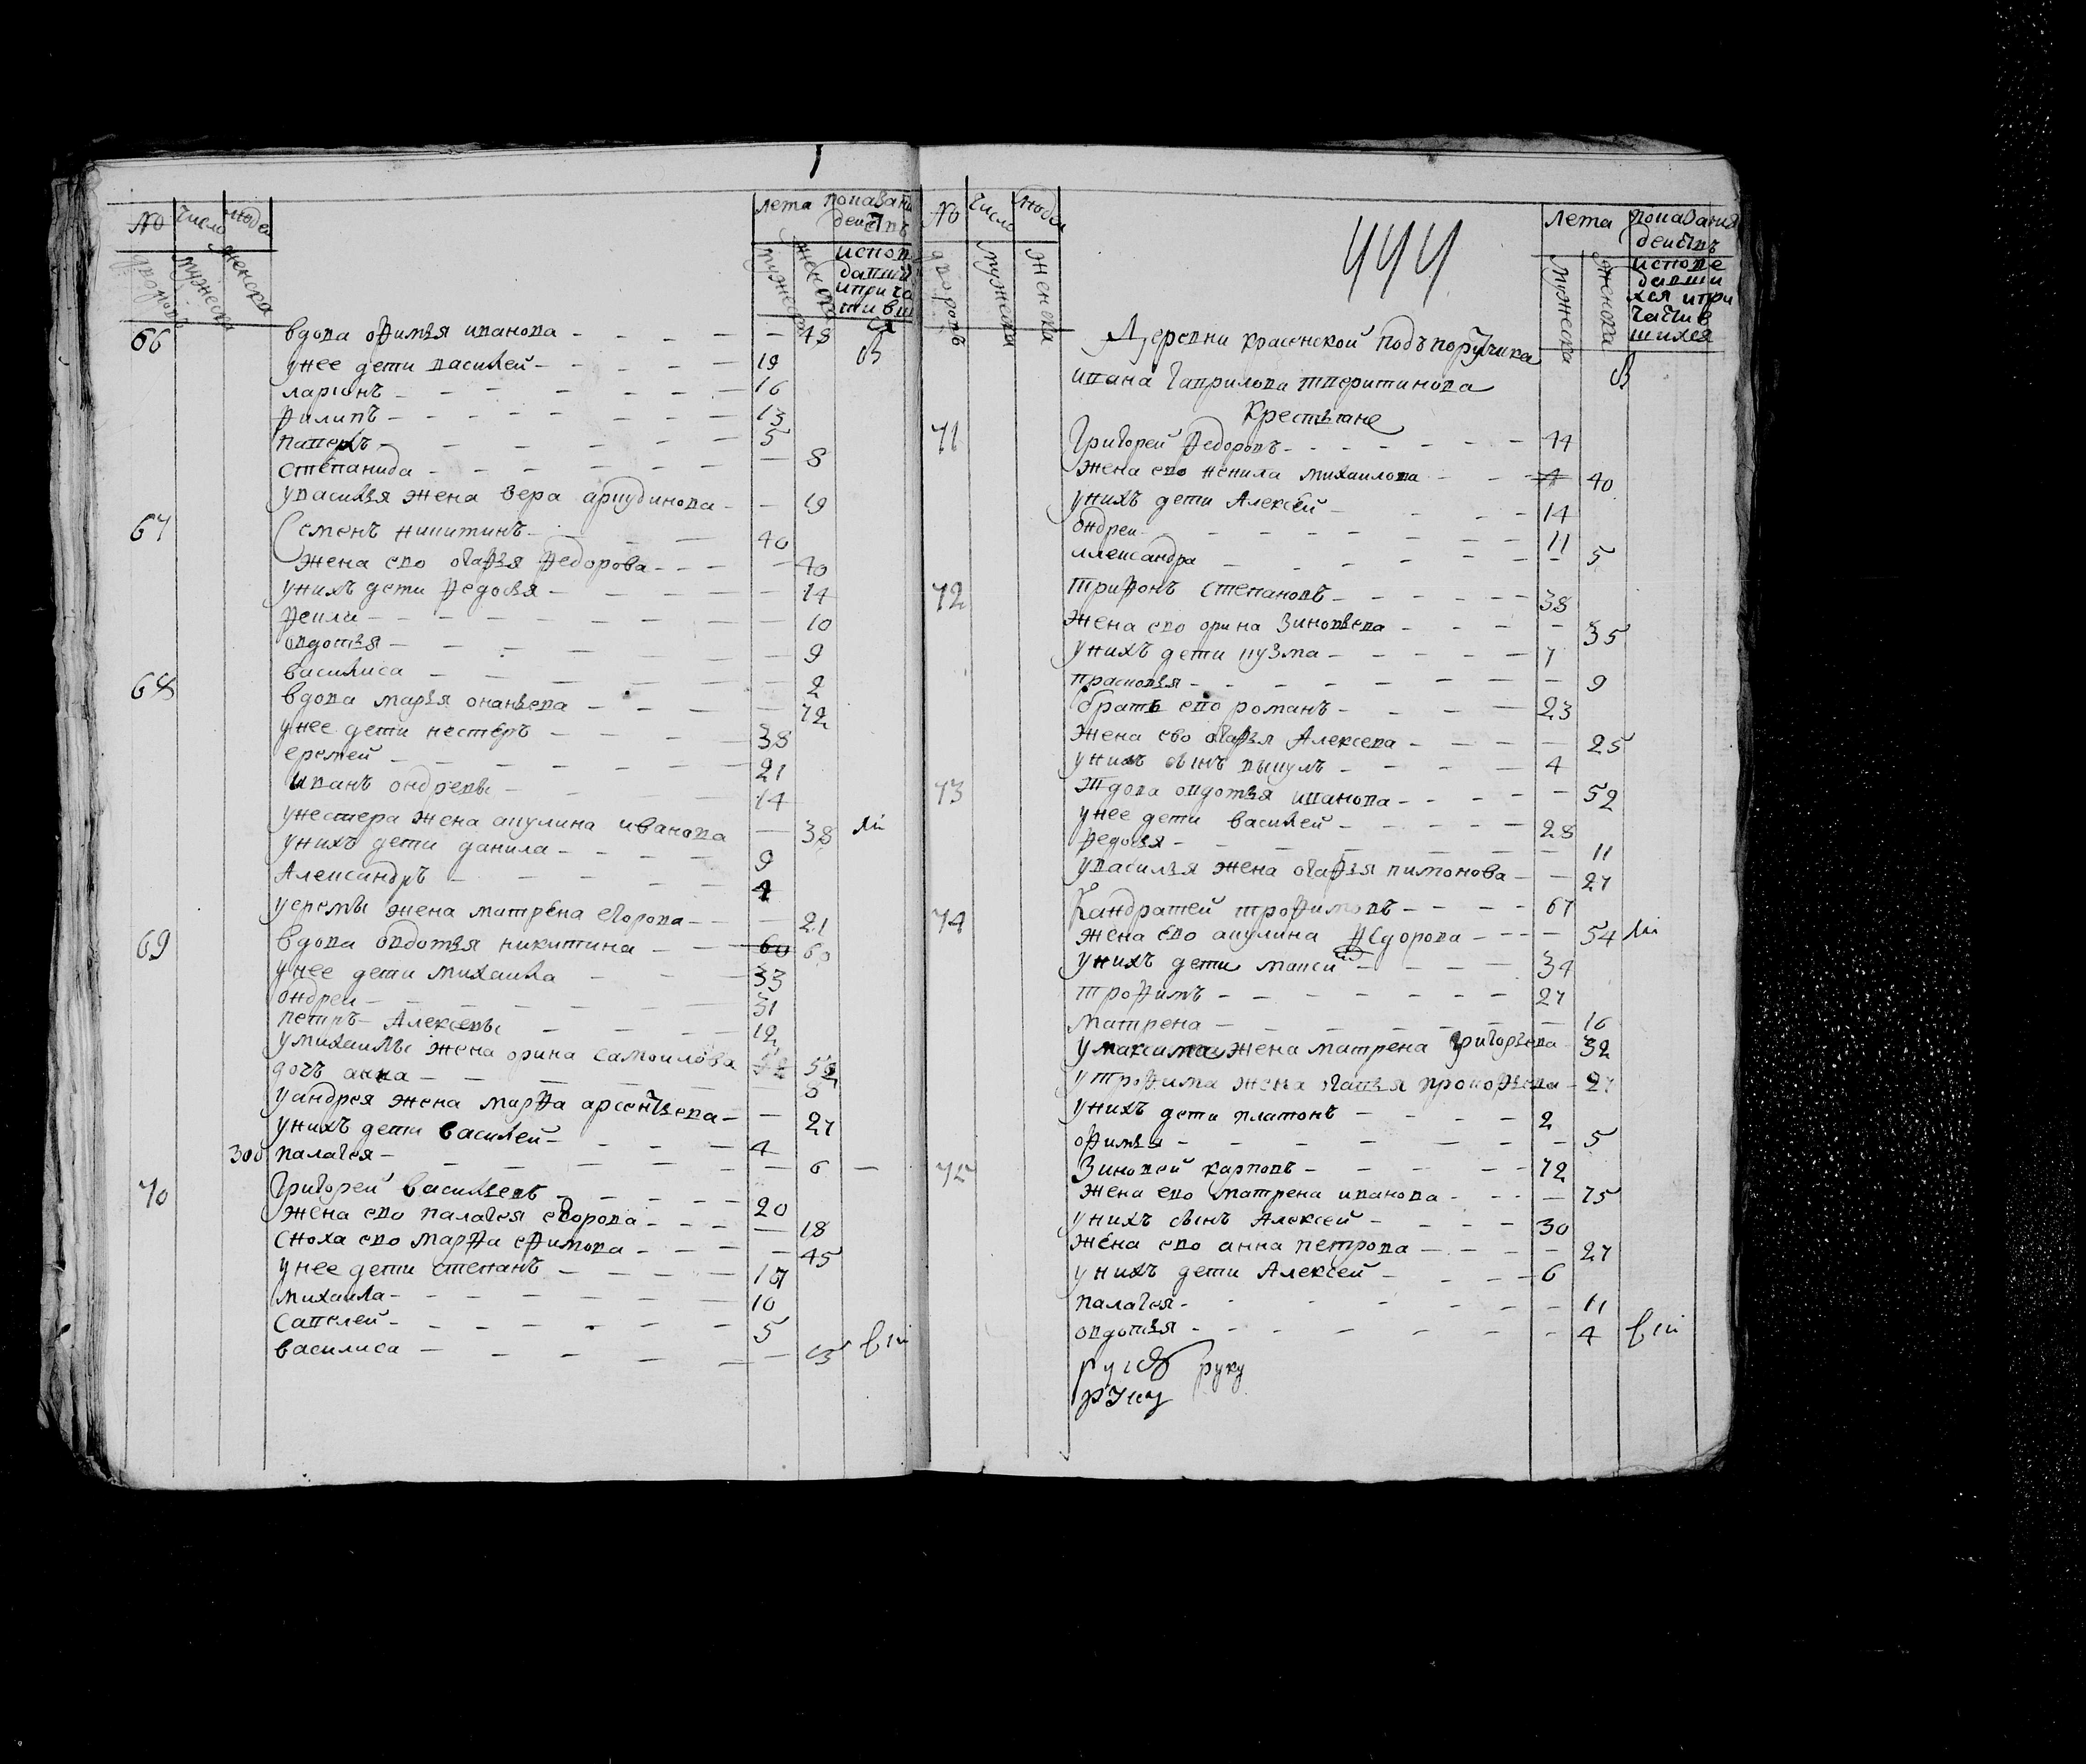 № число людей лета показание действъ
дворовъ мужеска женска мужеска женска исповедавшихся и причастившихся
66 вдова офимья иванова 48
у нее дети василей 19
ларионъ 16
филипъ 13
5
степанида 8
у василья жена вера 19
67 Семенъ никитинъ 40
жена ево огафья федорова 40
у нихъ дети федосья 14
фекла 10
овдотья 9
василиса 2
68 вдова марья онаньева 72
у нее дети нестеръ 38
еремей 21
иванъ ондревы 14
у нестера жена акулина иванова 38
у нихъ дети данила 9
Александръ 4
у еремы жена матрена егорова 21
69 вдова овдотья никитина 60 60
у нее дети михаила 33
ондреи 31
петръ Алексевы 12
у михаилы жена орина самоилова
дочъ анна 8
у андрея жена марфа арсеньтева 27
у нихъ дети василей 4
300 палагея 6
70 Григорей васильевъ 20
жена ево палагея егорова 18
сноха ево марфа ефимова 45
у нее дети степанъ 17
михаила 10
савелей 5
василиса
№ число людей 444 лета показания действъ
дворовъ мужеска женска мужеска женска исповедавши хся и причастив шихся
Деревни красенской подъ порутчика
ивана гаврилова
крестьяне
71 Григорей федоровъ 44
жена ево ненила михаилова 40
у нихъ дети Алексей 14
ондреи 11
Александра 5
72 трифонъ степановъ 38
жена ево орина зиновьева 35
у нихъ дети кузма 7
прасковья 9
братъ ево романъ 23
жена ево огафья Алексева 25
у нихъ сынъ викулъ 4
73 вдова овдотья иванова 52
у нее дети василей 28
федосья 11
у василья жена огафья пимонова 27
74 Кандратей трофимовъ 67
жена ево акулина федорова 54
у нихъ дети максим 34
трофимъ 27
матрена 16
у максима жена матрена григорьева 32
у трофима жена огапья прокофьева 27
у нихъ дети платонъ 2
офимья 5
75 Зиновей карповъ 72
жена ево матрена иванова 75
у нихъ сынъ Алексей 30
жена ево анна петрова 27
у нихъ дети Алексей 6
палагея 11
овдотья 4
руку
руку